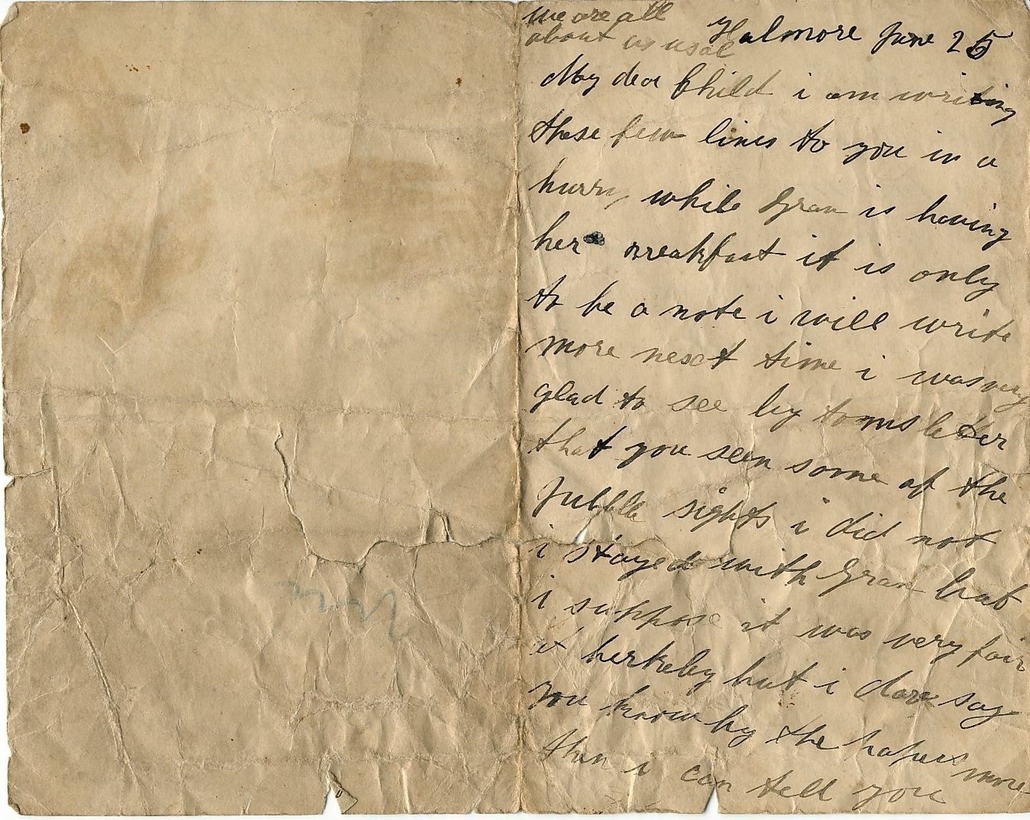 we are all
about as usal
Halmore June 25
My dear Child i am writing
these few lines to you in a
hurry while Gran is having
her breakfast it is only
to be a note i will write
more nesct time i was very
glad to see by toms letter
that you seen some of the
Jubble sights i did not
i stayed with Gran but
i suppose it was very fair
at berkeley but i dare say
you know by the papers more
then i can tell you